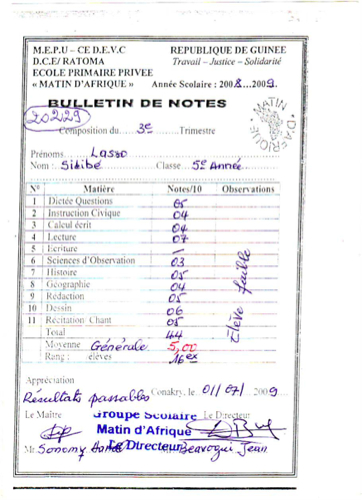 M.E.P.U – CE D.E.V.C REPUBLIQUE DE GUINEE
D.C.E/ RATOMA Travail – Justice – Solidarité
ECOLE PRIMAIRE PRIVEE
« MATIN D'AFRIQUE » Année Scolaire : 2008...2009.
BULLETIN DE NOTES
20229
MATIN D'AFRIQUE
Composition du....3e........Trimestre
Prénoms Lasso
Nom : Sidibé Classe : 5e Année
N° Matière Notes/10 Observations
1 Dictée Questions 05
2 Instruction Civique 04
3 Calcul écrit 04
4 Lecture 07
5 Ecriture —
6 Sciences d'Observation 03
7 Histoire 05
8 Géographie 04
9 Rédaction 05
10 Dessin 06
11 Récitation Chant 05
Total 44
Moyenne Générale 5,00
Rang : élèves 16ex
Elève faible
Appréciation
Résultats passables Conakry, le 01/07/2009
Le Maître Groupe Scolaire Le Directeur
Matin d'Afrique
Le Directeur
Mr. Sonomy Beavogui Jean